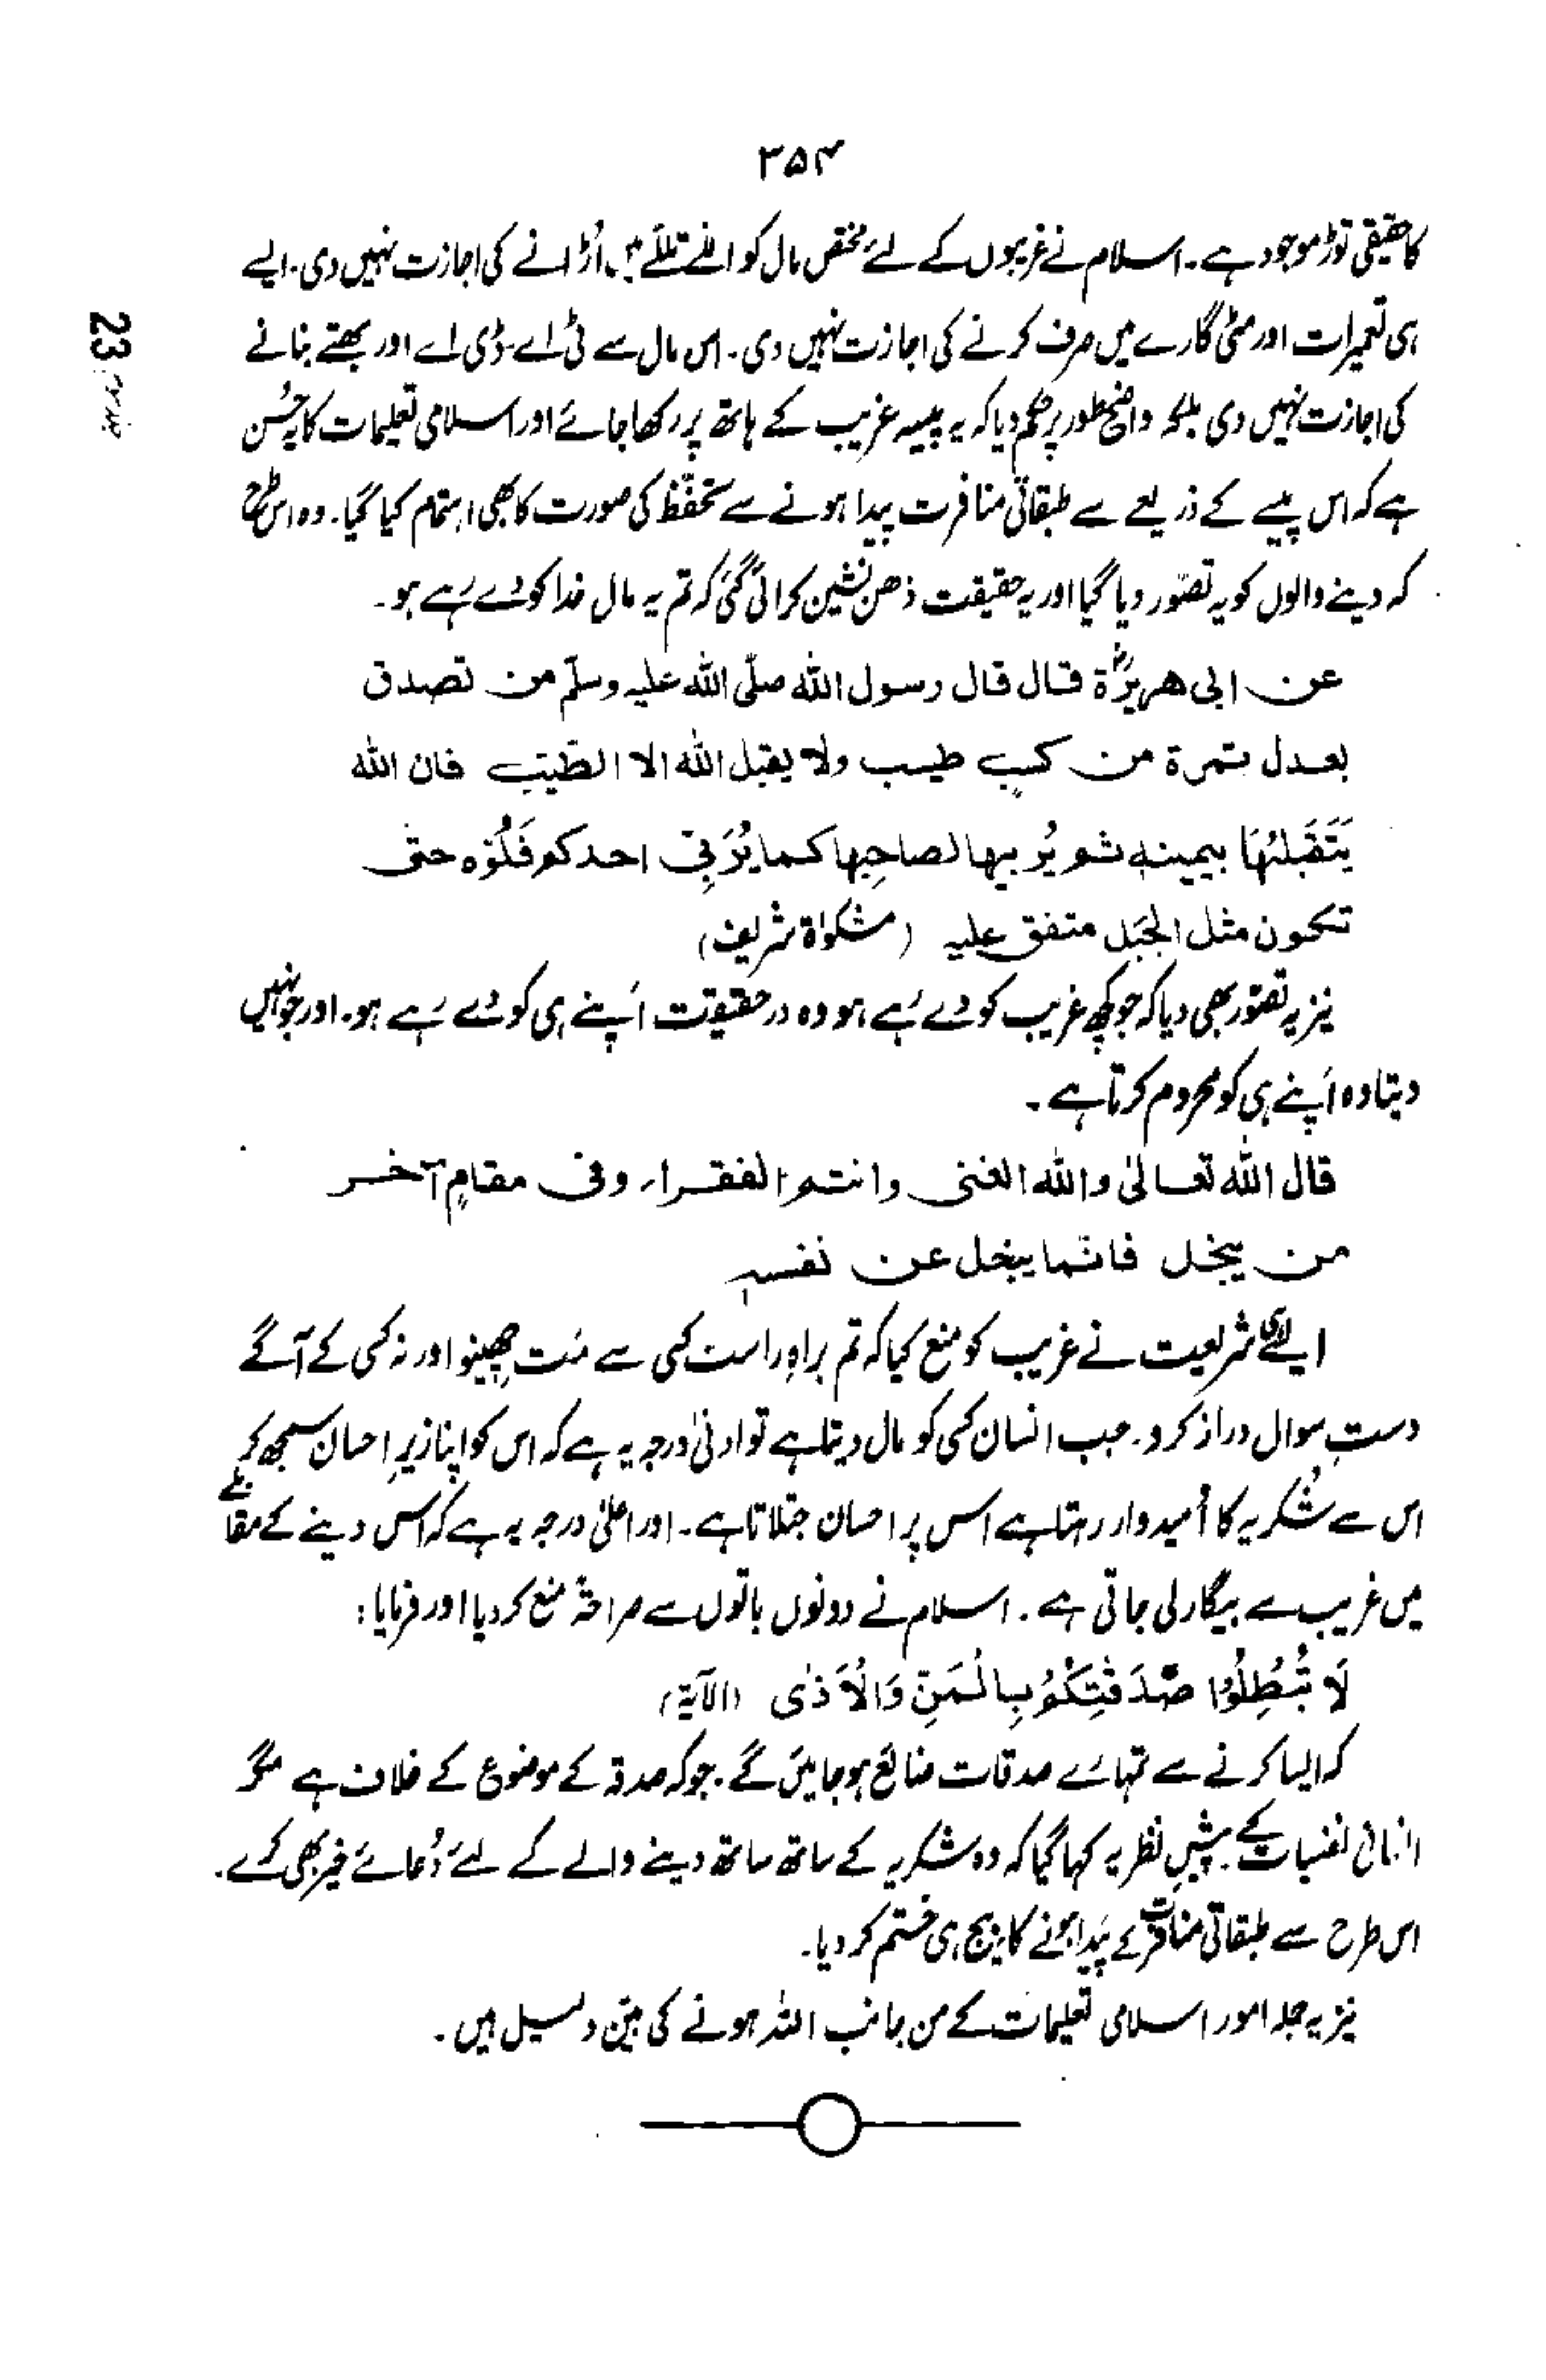 ۳۵۴
کا حقیقی توڑ موجود ہے۔ اسلام نے غریبوں کے لئے مختص مال کو اللے تللے میں اُڑانے کی اجازت نہیں دی۔ ایسے
ہی تعمیرات اور مٹی گارے میں صرف کرنے کی اجازت نہیں دی۔ اس مال سے ٹی اے ۔ ڈی اے اور بھتے بنانے
کی اجازت نہیں دی بلکہ واضح طور پر حکم دیا کہ یہ پیسہ غریب کے ہاتھ پر رکھا جائے اور اسلامی تعلیمات کا یہ حُسن
ہے کہ اس پیسے کے ذریعے سے طبقاتی منافرت پیدا ہونے سے تحفّظ کی صورت کا بھی اہتمام کیا گیا۔ وہ اس طرح
کہ دینے والوں کو یہ تصوّر دیا گیا اور یہ حقیقت ذھن نشین کرائی گئی کہ تم یہ مال خدا کو دے رہے ہو۔
عن ابی ھریرۃؓ قال قال رسول اللہ صلّی اللہ علیہ وسلّم من تصدق
بعدل تمرۃ من کسبٍ طیب ولا یقبل اللہ الا الطّیّب فان اللہ
یَتَقَبَّلُہَا بیمینہٖ ثم یُربیہا لصاحِبہا کما یُرَبِّی احدکم فَلُوَّہ حتی
تکون مثل الجَبَل متفق علیہ (مشکوٰۃ شریف)
نیز یہ تصوّر بھی دیا کہ جو کچھ غریب کو دے رہے ہو وہ درحقیقت اَپنے ہی کو دے رہے ہو۔ اور جو نہیں
دیتا وہ اَپنے ہی کو محروم کرتا ہے ۔
قال اللہ تعالیٰ واللہ الغنی وانتم الفقراء وفی مقامٍ آخر
من یبخل فانّما یبخل عن نفسہٖ
ایسے ہی شریعت نے غریب کو منع کیا کہ تم براہِ راست کسی سے مَت چھینو اور نہ کسی کے آگے
دستِ سوال دراز کرو۔ جب انسان کسی کو مال دیتا ہے تو ادنیٰ درجہ یہ ہے کہ اس کو اپنا زیرِ احسان سمجھ کر
اس سے شکریہ کا اُمیدوار رہتا ہے اس پر احسان جتلاتا ہے۔ اور اعلیٰ درجہ یہ ہے کہ اس دینے کے مقابلے
میں غریب سے بیگار لی جاتی ہے ۔ اسلام نے دونوں باتوں سے صراحۃً منع کر دیا اور فرمایا :
لَا تُبْطِلُوْا صَدَقٰتِکُمْ بِالْمَنِّ وَالْاَذٰی (الآیۃ)
کہ ایسا کرنے سے تمہارے صدقات ضائع ہو جائیں گے ۔ جو کہ صدقہ کے موضوع کے خلاف ہے مگر
انسانی نفسیات کے پیشِ نظر یہ کہا گیا کہ وہ شکریہ کے ساتھ ساتھ دینے والے کے لئے دُعائے خیر بھی کرے ۔
اس طرح سے طبقاتی منافرت کے پَیدا ہونے کا بیج ہی ختم کر دیا۔
نیز یہ جملہ امور اسلامی تعلیمات کے من جانب اللہ ہونے کی بیّن دلیل ہیں ۔
23